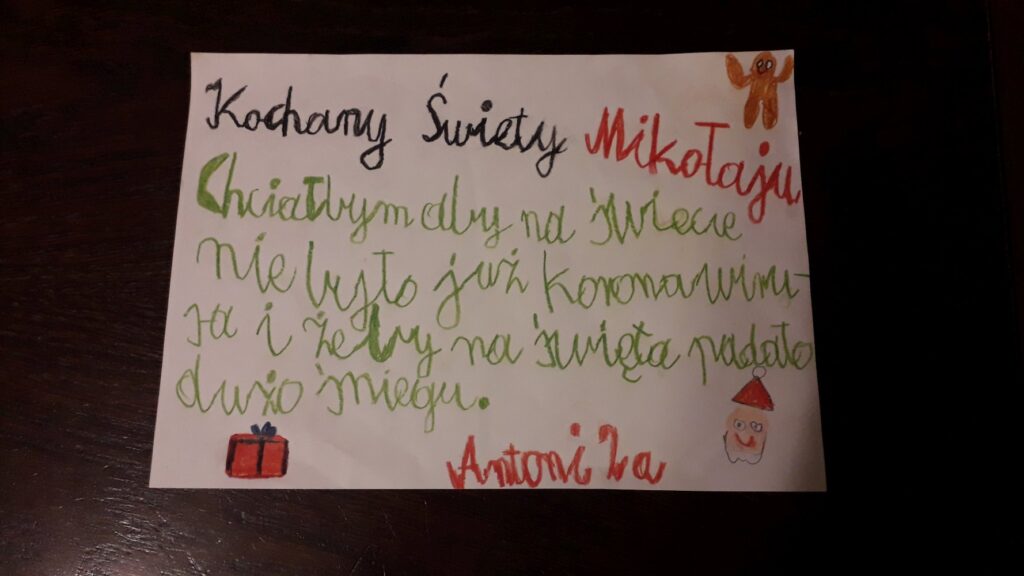 Kochany Święty Mikołaju
Chciałbym aby na świecie
nie było już koronawiru-
sa i żeby na święta padało
dużo śniegu.
Antoni 2a